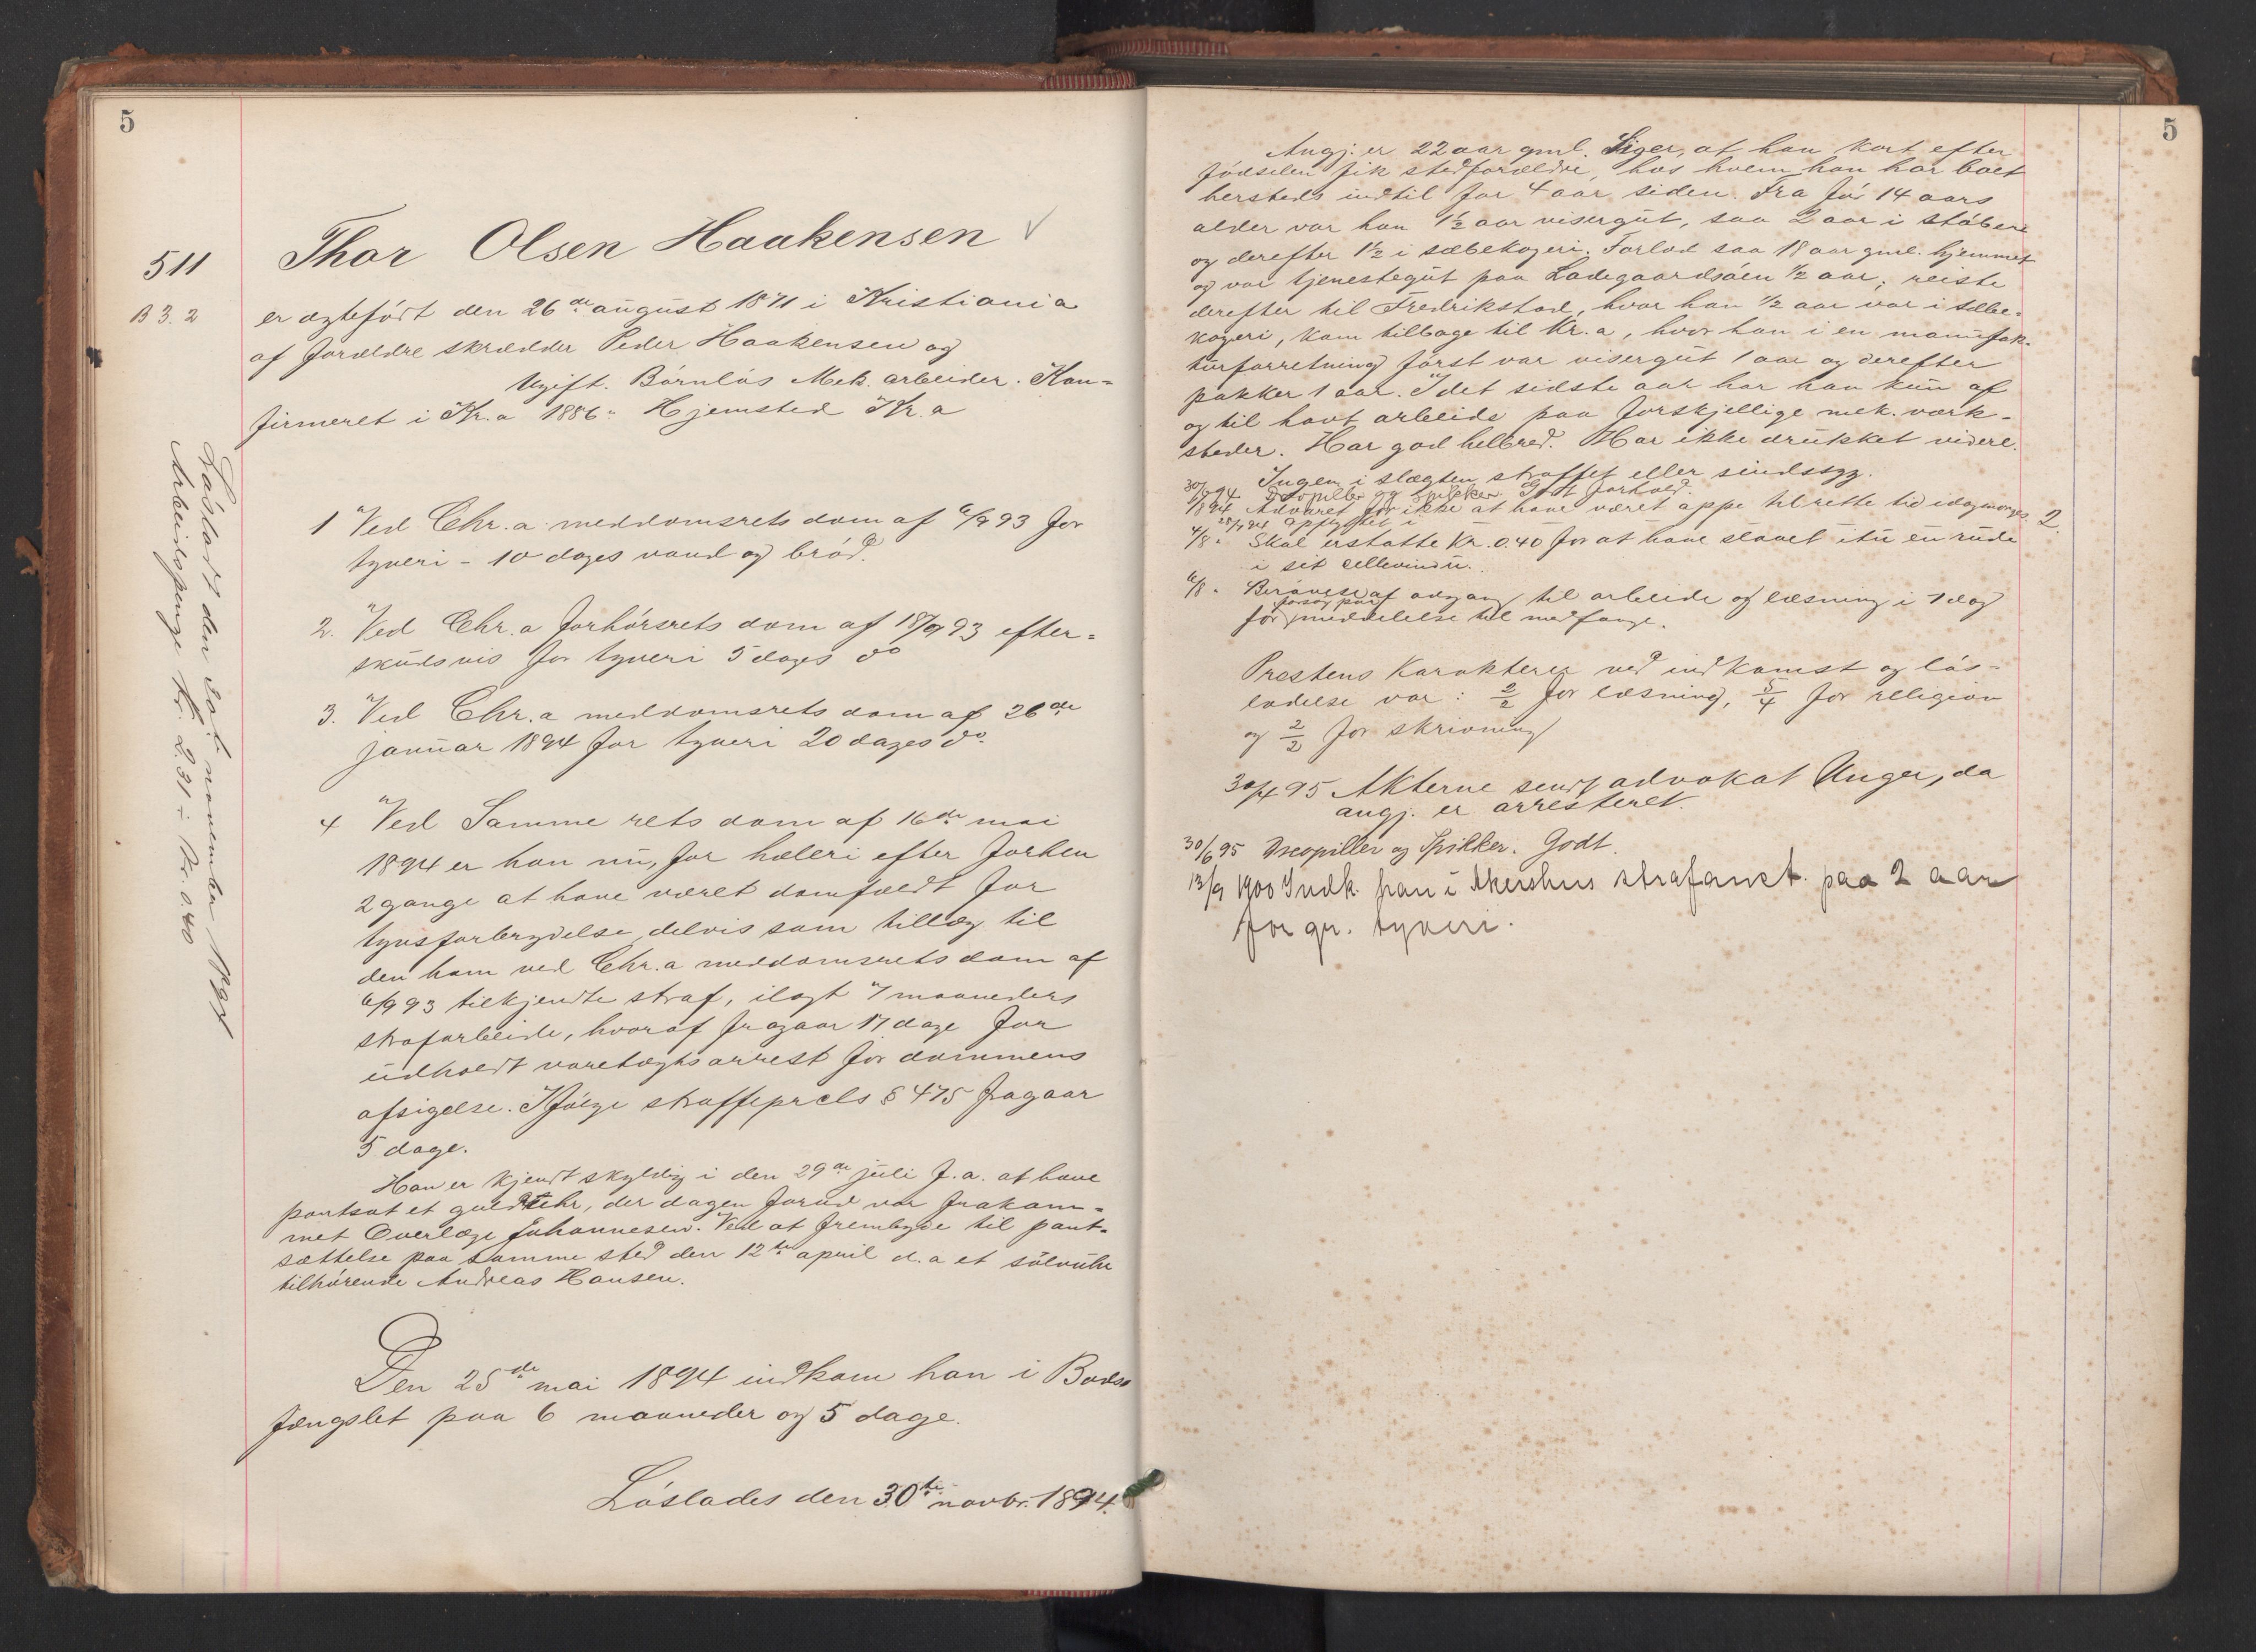 5
511
B 3. 2
Thor Olsen Haakensen ✓
er ægtefødt den 26de august 1871 i Kristiania
af forældre skrædder Peder Haakensen og
Ugift. Børnløs Mek. arbeider. Kon=
firmeret i Kr.a 1886. Hjemsted Kr.a
1 Ved Chr.a meddomsrets dom af 6/9 93 for
tyveri - 10 dages vand og brød.
2. Ved Chr.a forhørsrets dom af 18/9 93 efter=
skudsvis for tyveri 5 dages do
3. Ved Chr.a meddomsrets dom af 26de
januar 1894 for tyveri 20 dages do.
4 Ved Samme rets dom af 16de mai
1894 er han nu, for hæleri efter forhen
2 gange at have været domfældt for
tyvsforbrydelse, delvis som tillæg til
den ham ved Chr.a meddomsrets dom af
6/9 93 tilkjendte straf, ilagt 7 maaneders
strafarbeide, hvoraf fragaar 17 dage for
udholdt varetægtsarrest før dommens
afsigelse. Ifølge straffeprcls § 475 fragaar
5 dage.
Han er kjendt skyldig i den 29de juli f.a. at have
pantsat et guldúhr, der dagen forud var frakom=
met Overlæge Johannesen. Ved at frembyde til pant=
sættelse paa samme sted den 12te april d.a et sølvuhr
tilhørende Andreas Hansen.
Den 25de mai 1894 indkom han i Bods
fængslet paa 6 maaneder og 5 dage.
Løslades den 30te novbr. 1894.
Løsladt den 30te november 1894
Arbeidspenge Kr. 2.31 ÷ Kr. 0.40
5
Angj. er 22 aar gml. Siger, at han kort efter
fødselen fik stedforældre, hos hvem han har boet
hersteds indtil for 4 aar siden. Fra fór 14 aars
alder var han 1½ aar visergut, saa 2 aar i støberi
og derefter 1½ i sæbekogeri. Forlod saa 18 aar gml. hjemmet
og var tjenestegut paa Ladegaardsøen ½ aar, reiste
derefter til Fredrikstad, hvor han ½ aar var i sæbe=
kogeri, kom tilbage til Kr.a, hvor han i en manufak=
turforretning først var visergut 1 aar og derefter
pakker 1 aar. I det sidste aar har han kun af
og til havt arbeide paa forskjellige mek. værk=
steder. Har god helbred. Har ikke drukket videre.
Ingen i slægten straffet eller sindssyg.
Godt forhold.
Advaret for ikke at have været oppe til rette tid idagmorges. 2.
4/8 " Skal erstatte Kr. 0.40 for at have slaaet itu en rude
i sit cellevindu.
6/8 " Berøvelse af adgang til arbeide og læsning i 1 dag
for forsøg paa meddelelse til medfange.
Prestens Karakterer ved indkomst og løs=
ladelse var: 2/2 for læsning, 5/4 for religion
og 2/2 for skrivning
30/4 95 Akterne sendt advokat Unger, da
angj. er arresteret.
30/6 95 og Spikker. Godt.
13/9 1900 Indk. han i Akershus strafanst. paa 2 aar
for gr. tyveri.